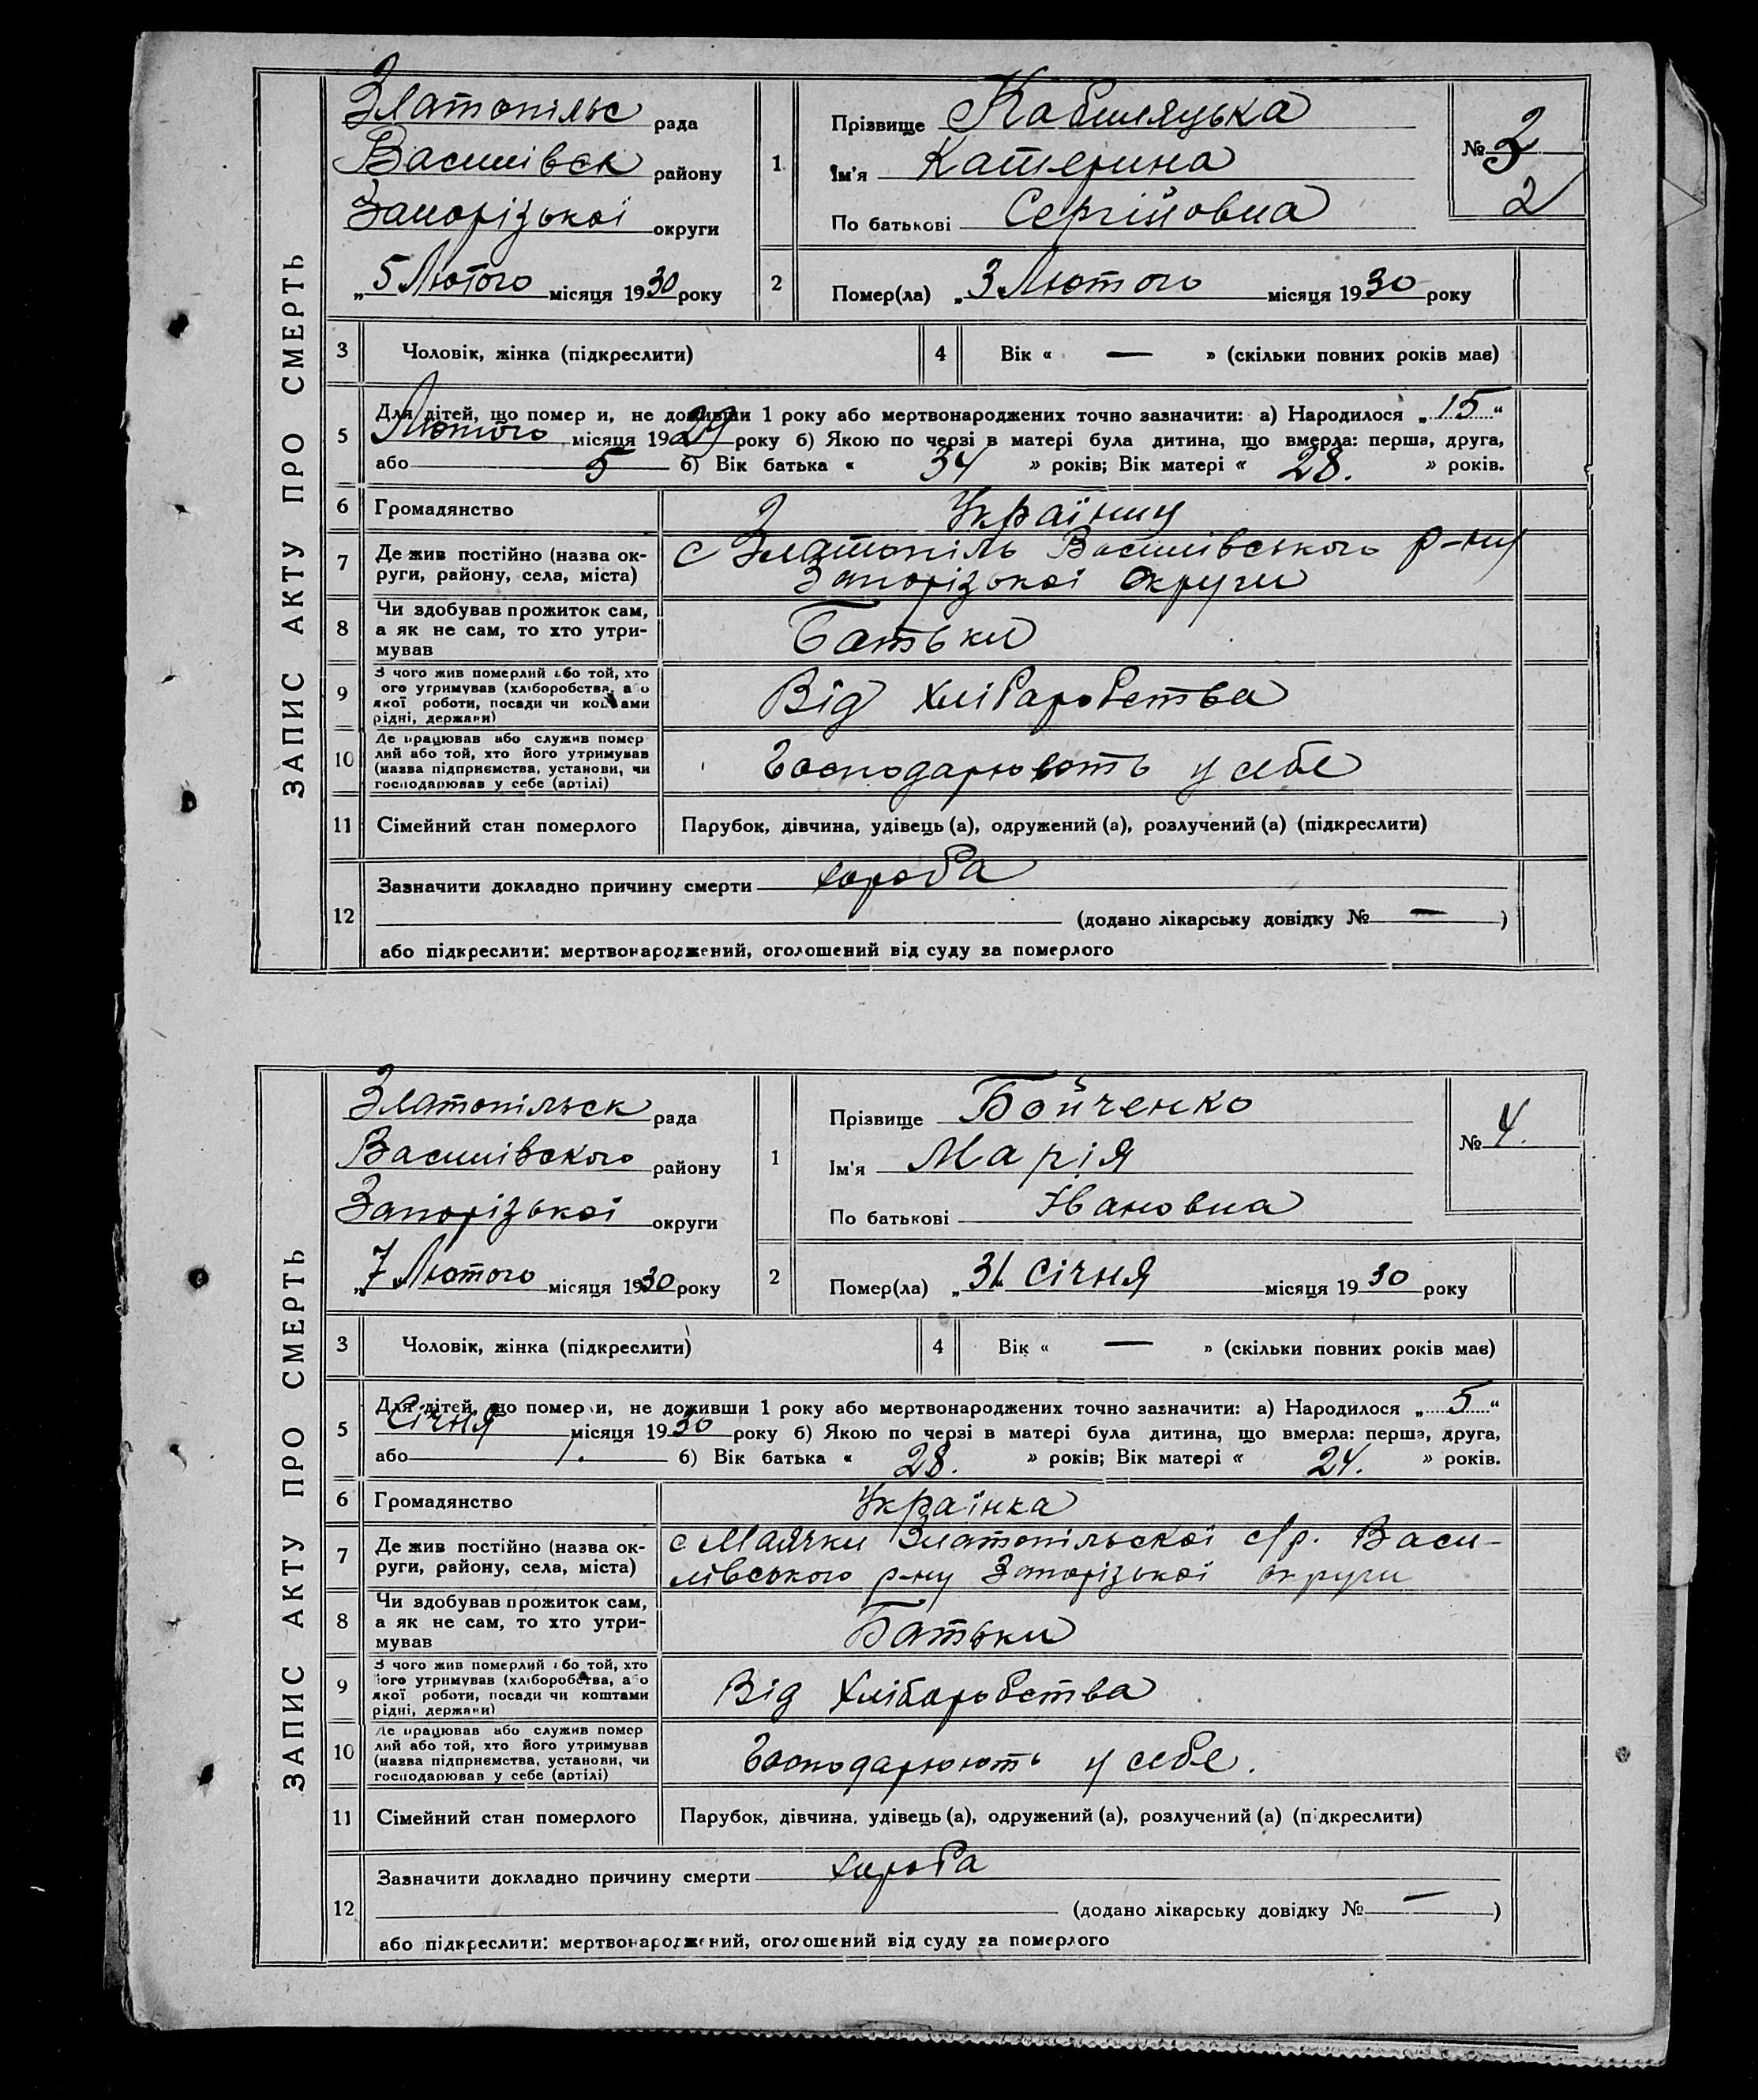 ЗАПИС АКТУ ПРО СМЕРТЬ
Златопільс рада
Василівск району
Запорізької округи
„5 Лютого місяця 1930 року
1 Прізвище Кабиляцька
Ім'я Катерина
По батькові Сергійовна
№ 3
2
2 Помер(ла) „3 Лютого місяця 1930 року
3 Чоловік, жінка (підкреслити)
4 Вік « — » (скільки повних років має)
5 Для дітей, що помер и, не доживши 1 року або мертвонароджених точно зазначити: а) Народилося „15“
Лютого місяця 1929 року б) Якою по черзі в матері була дитина, що вмерла: перша, друга,
або 5 б) Вік батька « 34 » років; Вік матері « 28. » років.
6 Громадянство Українц
7 Де жив постійно (назва ок-
руги, району, села, міста)
с Златопіль Василівського р-ну
Запорізької округи
8 Чи здобував прожиток сам,
а як не сам, то хто утри-
мував
Батьки
9 З чого жив померлий або той, хто
ого утримував (хліборобства, або
якої роботи, посади чи коштами
рідні, держави)
Від хлібаробства
10 Де працював або служив помер
лий або той, хто його утримував
(назва підприємства, установи, чи
господарював у себе (артілі)
Господарювоть у себе
11 Сімейний стан померлого Парубок, дівчина, удівець (а), одружений (а), розлучений (а) (підкреслити)
12 Зазначити докладно причину смерти хороба
(додано лікарську довідку № — )
або підкреслити: мертвонароджений, оголошений від суду за померлого
ЗАПИС АКТУ ПРО СМЕРТЬ
Златопільск рада
Василівского району
Запорізької округи
„7 Лютого місяця 1930 року
1 Прізвище Бойченко
Ім'я Марія
По батькові Івановна
№ 4.
2 Помер(ла) „31 Січня місяця 1930 року
3 Чоловік, жінка (підкреслити)
4 Вік « — » (скільки повних років має)
5 Для дітей, що помер и, не доживши 1 року або мертвонароджених точно зазначити: а) Народилося „5“
Січня місяця 1930 року б) Якою по черзі в матері була дитина, що вмерла: перша, друга,
або 1. б) Вік батька « 28. » років; Вік матері « 24. » років.
6 Громадянство Українка
7 Де жив постійно (назва ок-
руги, району, села, міста)
с Маячки Златопільскої с/р. Васи-
лівського р-ну Запорізької округи
8 Чи здобував прожиток сам,
а як не сам, то хто утри-
мував
Батьки
9 З чого жив померлий або той, хто
його утримував (хліборобства, або
якої роботи, посади чи коштами
рідні, держави)
Від хлібаробства
10 Де працював або служив помер
лий або той, хто його утримував
(назва підприємства, установи, чи
господарював у себе (артілі)
Господарюють у себе.
11 Сімейний стан померлого Парубок, дівчина, удівець (а), одружений (а), розлучений (а) (підкреслити)
12 Зазначити докладно причину смерти хороба
(додано лікарську довідку № — )
або підкреслити: мертвонароджений, оголошений від суду за померлого